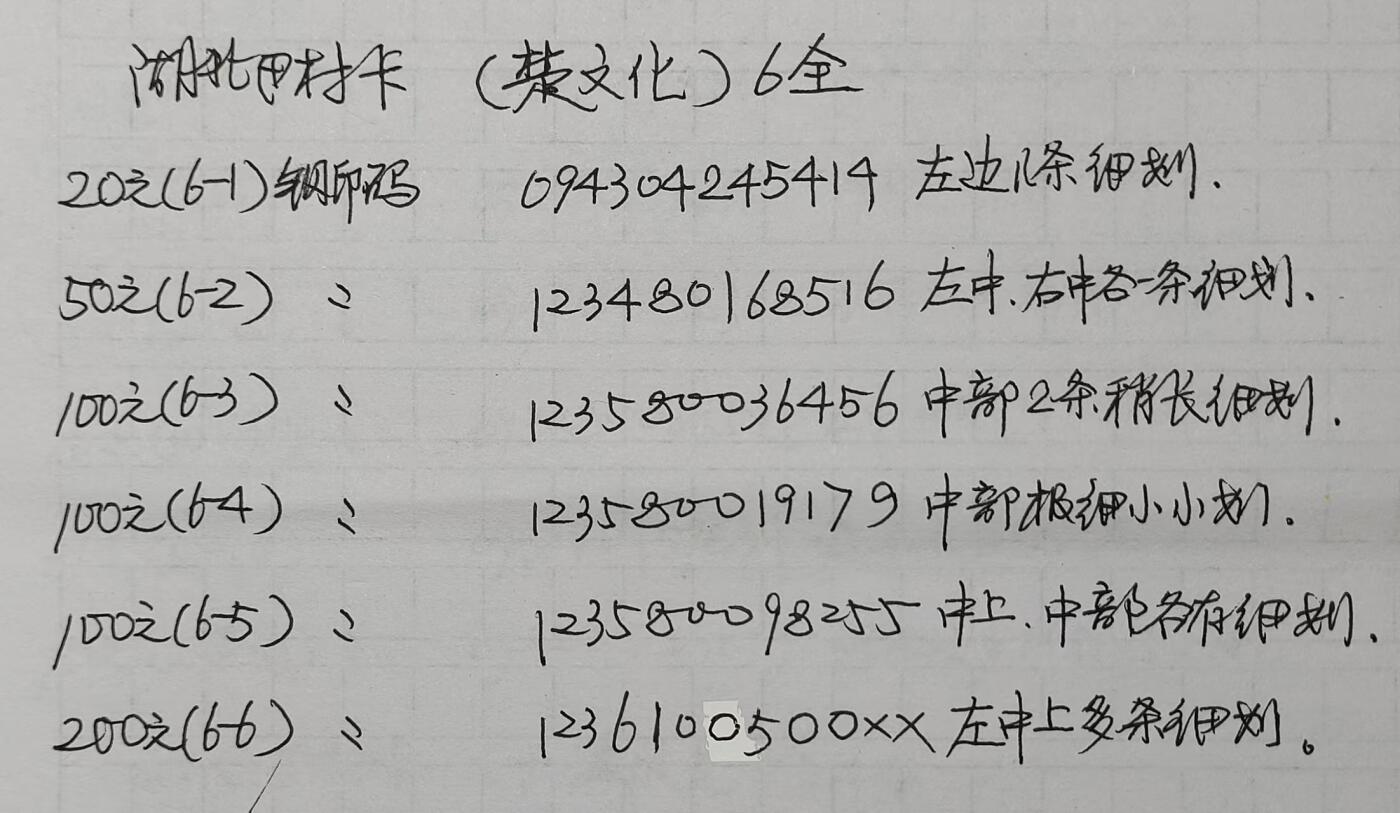 湖北田村卡 (楚文化) 6全
20元(6-1)钢印码 094304245414 左边1条细划.
50元(6-2) 〃 123480168516 左中.右中各一条细划.
100元(6-3) 〃 123580036456 中部2条稍长细划.
100元(6-4) 〃 123580019179 中部极细小小划.
100元(6-5) 〃 123580098255 中上.中部各有细划.
200元(6-6) 〃 1236100500XX 左中上多条细划。